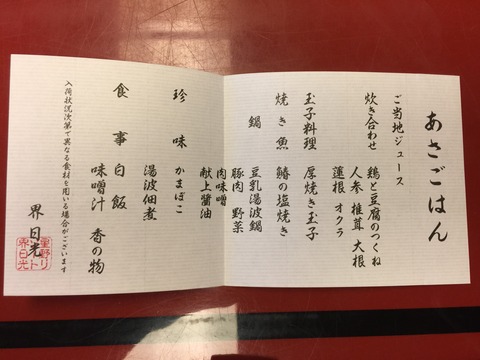 あさごはん
ご当地ジュース
炊き合わせ 鶏と豆腐のつくね
人参 椎茸 大根
蓮根 オクラ
玉子料理 厚焼き玉子
焼き魚 鰆の塩焼き
鍋 豆乳湯波鍋
豚肉 野菜
肉味噌
献上醤油
珍味 かまぼこ
湯波佃煮
食事 白飯
味噌汁 香の物
入荷状況次第で異なる食材を用いる場合がございます
界 日光
星野リゾート
界日光